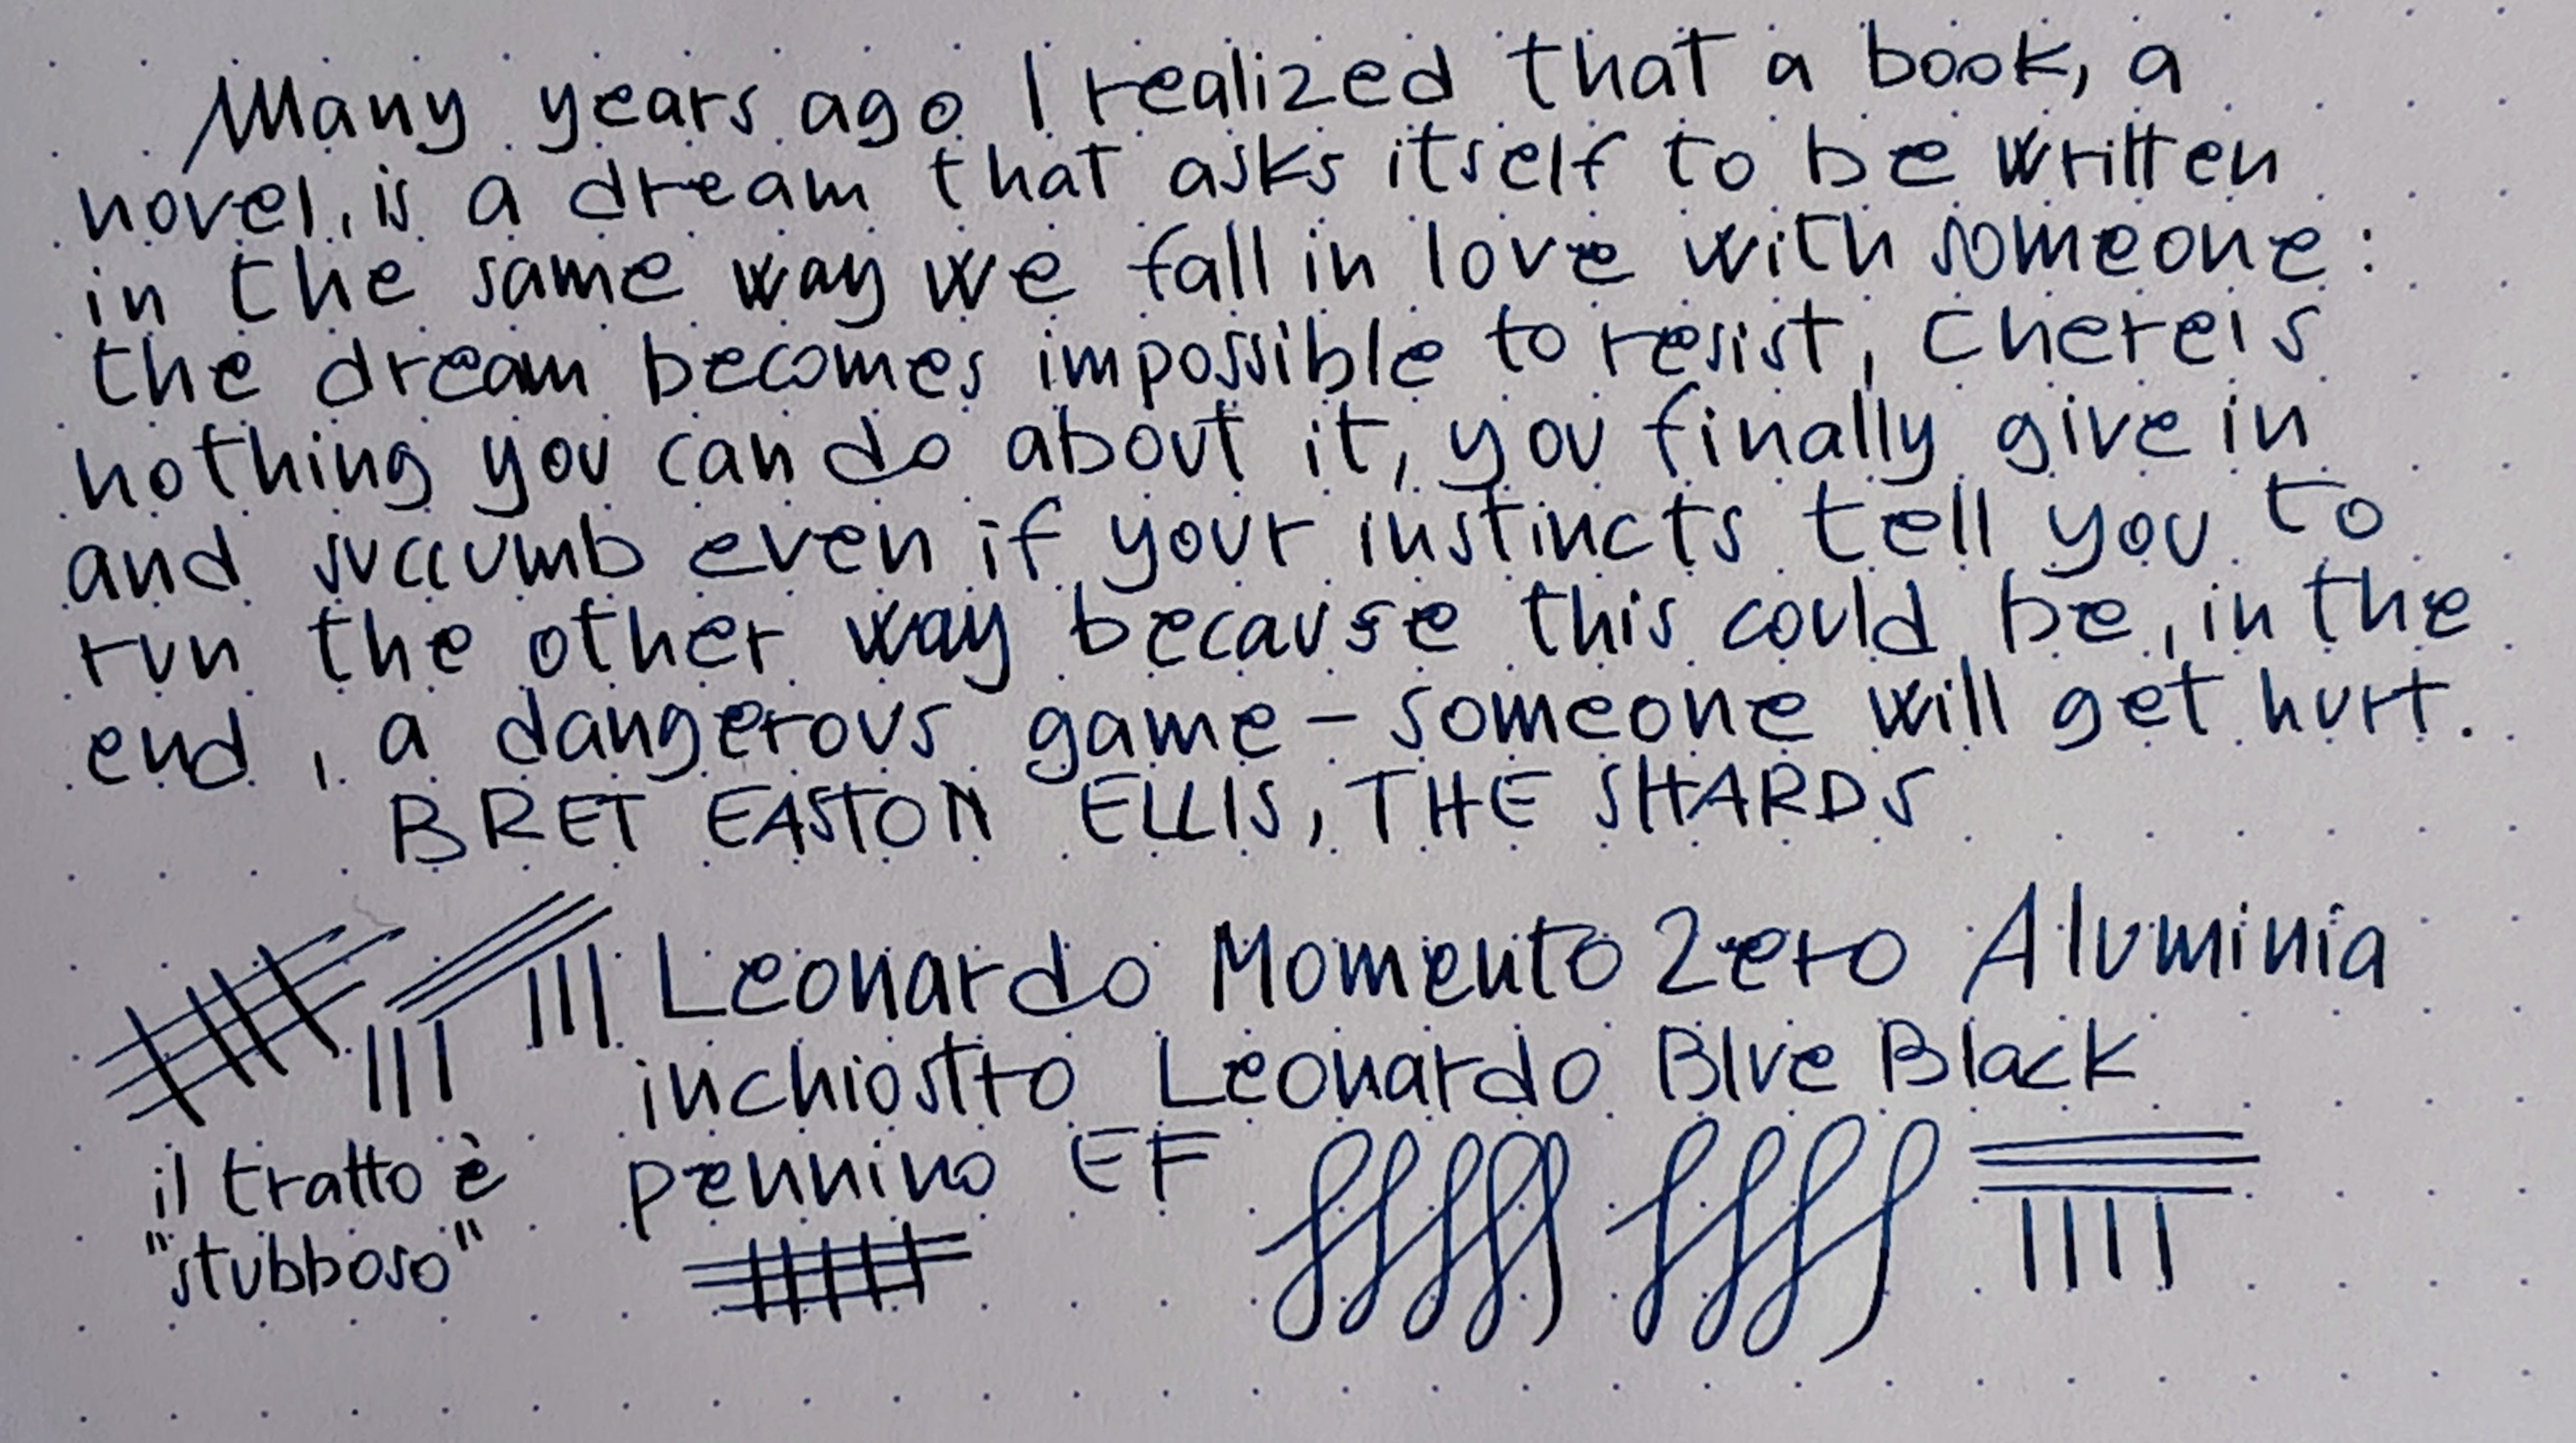 Many years ago I realized that a book, a
novel, is a dream that asks itself to be written
in the same way we fall in love with someone:
the dream becomes impossible to resist, there is
nothing you can do about it, you finally give in
and succumb even if your instincts tell you to
run the other way because this could be, in the
end, a dangerous game – someone will get hurt.
BRET EASTON ELLIS, THE SHARDS
Leonardo Momento Zero Aluminia
inchiostro Leonardo Blue Black
pennino EF
il tratto è
"stubboso"